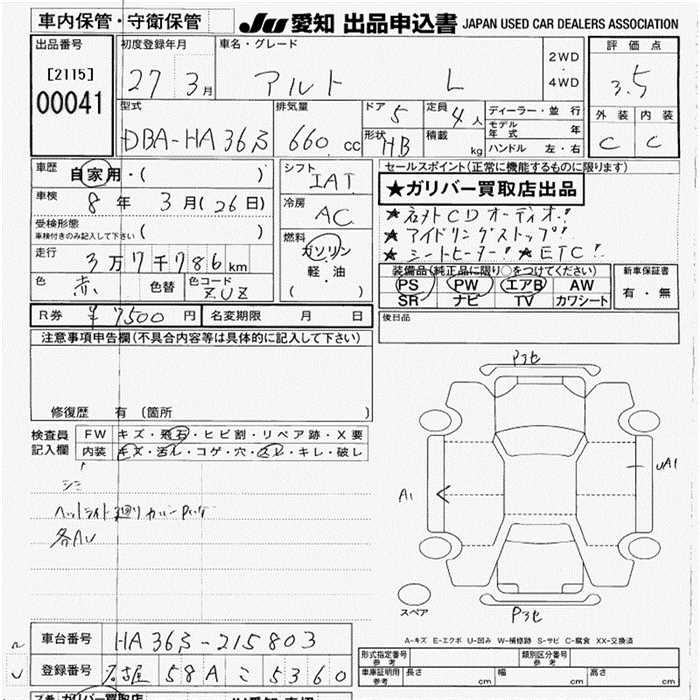 車内保管・守衛保管 JU 愛知 出品申込書 JAPAN USED CAR DEALERS ASSOCIATION
出品番号 初度登録年月 車名・グレード 2WD・4WD 評価点
[2115] 27 3月 アルト L 3.5
00041 型式 排気量 ドア 5 定員 4人 ディーラー・並行 外装 内装
モデル年式 年
DBA-HA36S 660 cc 形状 HB 積載 kg ハンドル 左・右 C C
車歴 自家用・( ) シフト IAT セールスポイント(正常に機能するものに限ります)
車検 8年 3月(26日) 冷房 AC ★ガリバー買取店出品
受検形態 車検付きのみ記入して下さい ( ) ★ CDオーディオ!!
走行 3万7千786km 燃料 ガソリン・軽・油 ( ) ★アイドリングストップ!!
★シートヒーター!! ★ETC!!
色 赤 色替 色コード ZUZ 装備品(純正品に限り○をつけてください) 新車保証書
PS PW エアB AW 有・無
SR ナビ TV カワシート
R券 ¥7500円 名変期限 月 日 後日品
注意事項申告欄(不具合内容等は具体的に記入して下さい)
修復歴 有(箇所 )
検査員記入欄 FW キズ・飛石・ヒビ割・リペア跡・X要
内装 キズ・汚レ・コゲ・穴・スレ・キレ・破レ
シミ
ヘットライト廻りカバー
各AU
Pスセ
A1
UA1
スペア
Pスセ
A-キズ E-エクボ U-凹み W-補修跡 S-サビ C-腐食 XX-交換済
車台番号 HA36S-215803
形式指定番号 参考 類別区分番号 参考
登録番号 名古屋 58A こ 5360
車庫証明用 参考 長さ cm 幅 cm 高さ cm
ガリバー買取店